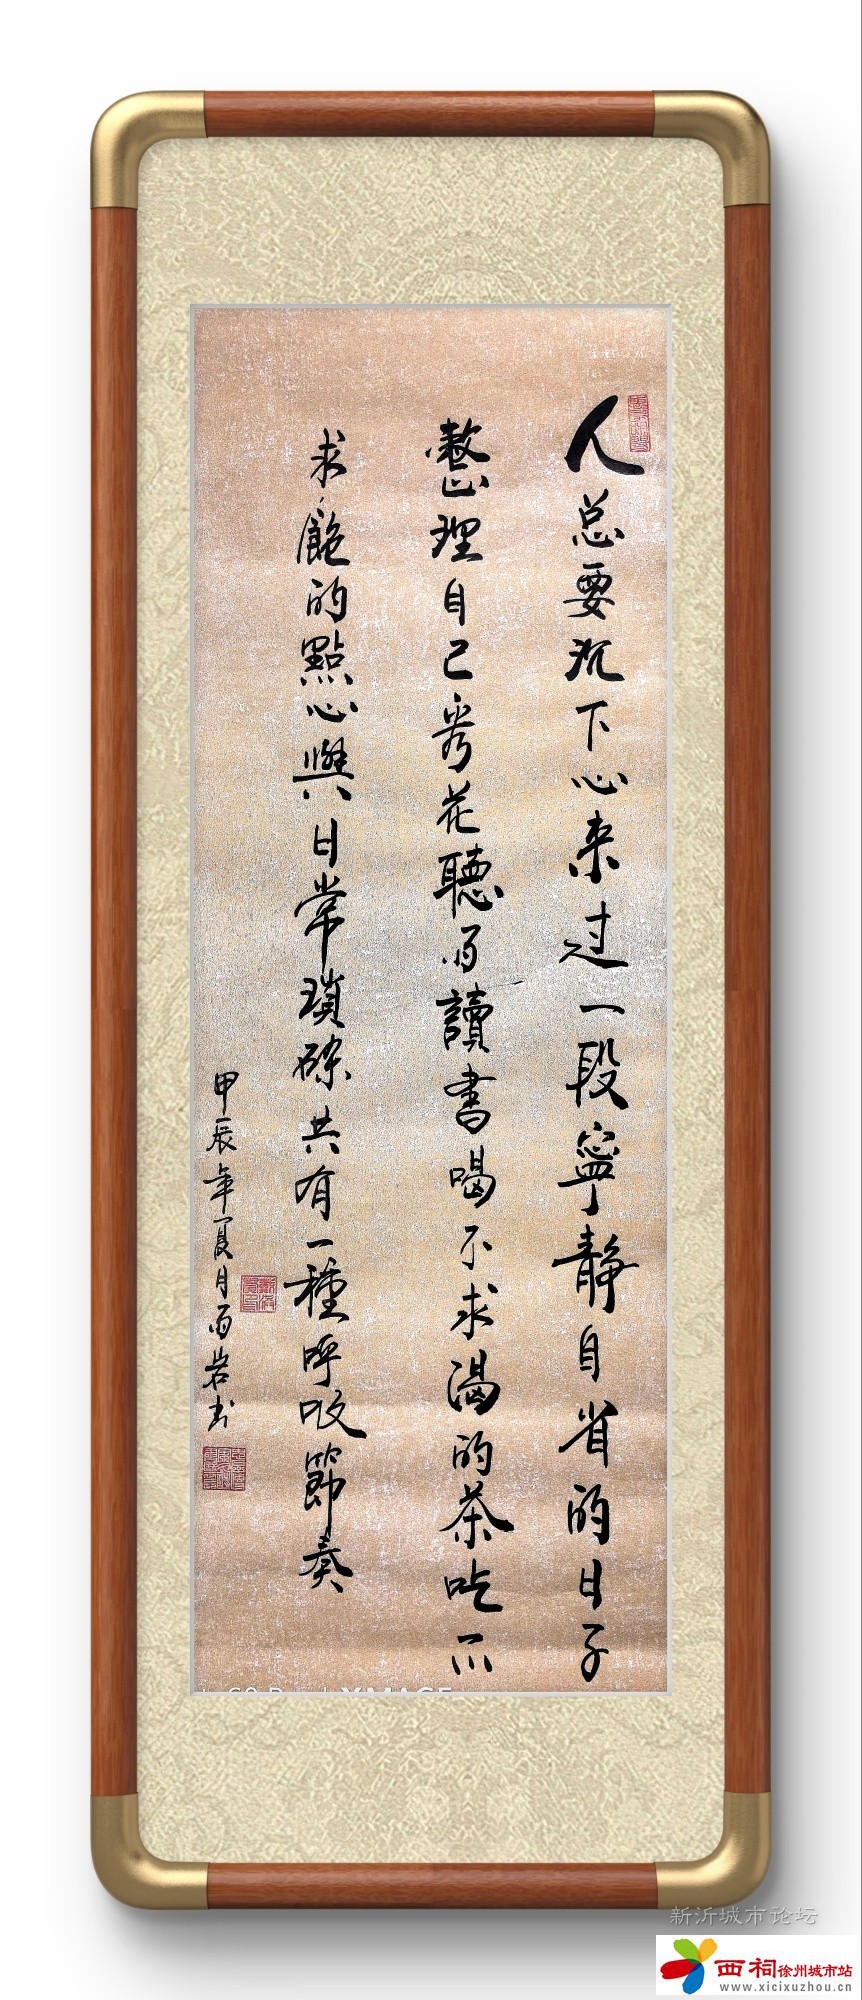 人总要沉下心来过一段寧靜自省的日子
整理自己看花聽雨讀書喝不求渴的茶吃不
求飽的點心與日常瑣碎共有一種呼吸節奏
甲辰年夏月雨岩书
XMAGE
新沂城市论坛
西祠徐州城市站
www.xicixuzhou.cn